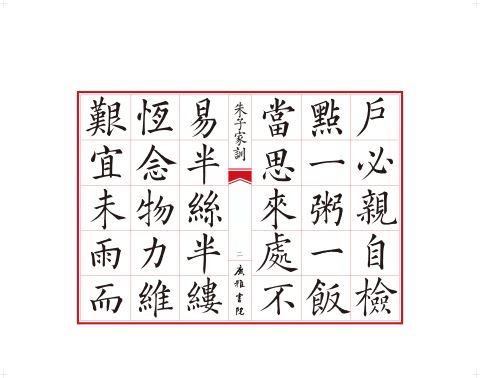 戶必親自檢
點一粥一飯
當思來處不
朱子家訓
二
广雅書院
易半絲半縷
恆念物力維
艱宜未雨而